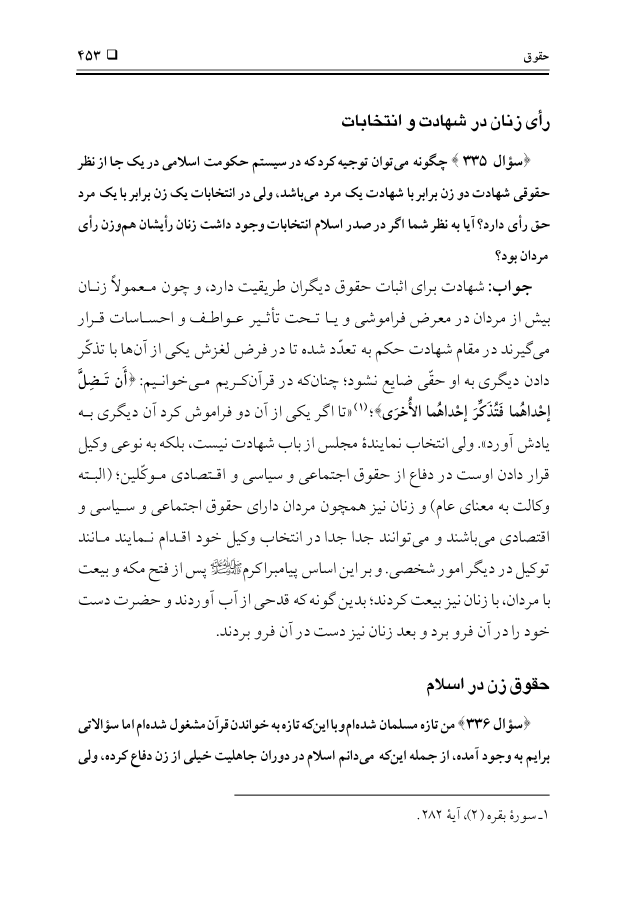 حقوق □ ۴۵۳
رأی زنان در شهادت و انتخابات
﴿سؤال ۳۳۵﴾ چگونه می‌توان توجیه کرد که در سیستم حکومت اسلامی در یک جا از نظر
حقوقی شهادت دو زن برابر با شهادت یک مرد می‌باشد، ولی در انتخابات یک زن برابر با یک مرد
حق رأی دارد؟ آیا به نظر شما اگر در صدر اسلام انتخابات وجود داشت زنان رأیشان هم‌وزن رأی
مردان بود؟
جواب: شهادت برای اثبات حقوق دیگران طریقیت دارد، و چون معمولاً زنان
بیش از مردان در معرض فراموشی و یا تحت تأثیر عواطف و احساسات قرار
می‌گیرند در مقام شهادت حکم به تعدّد شده تا در فرض لغزش یکی از آن‌ها با تذکّر
دادن دیگری به او حقّی ضایع نشود؛ چنان‌که در قرآن‌کریم می‌خوانیم: ﴿أَن تَضِلَّ
إحْداهُما فَتُذَكِّرَ إحْداهُما الأُخرَی﴾؛(۱) «تا اگر یکی از آن دو فراموش کرد آن دیگری به
یادش آورد». ولی انتخاب نمایندهٔ مجلس از باب شهادت نیست، بلکه به نوعی وکیل
قرار دادن اوست در دفاع از حقوق اجتماعی و سیاسی و اقتصادی موکّلین؛ (البته
وکالت به معنای عام) و زنان نیز همچون مردان دارای حقوق اجتماعی و سیاسی و
اقتصادی می‌باشند و می‌توانند جدا جدا در انتخاب وکیل خود اقدام نمایند مانند
توکیل در دیگر امور شخصی. و بر این اساس پیامبراکرم ﷺ پس از فتح مکه و بیعت
با مردان، با زنان نیز بیعت کردند؛ بدین گونه که قدحی از آب آوردند و حضرت دست
خود را در آن فرو برد و بعد زنان نیز دست در آن فرو بردند.
حقوق زن در اسلام
﴿سؤال ۳۳۶﴾ من تازه مسلمان شده‌ام و با این‌که تازه به خواندن قرآن مشغول شده‌ام اما سؤالاتی
برایم به وجود آمده، از جمله این‌که می‌دانم اسلام در دوران جاهلیت خیلی از زن دفاع کرده، ولی
۱ـ سورهٔ بقره (۲)، آیهٔ ۲۸۲.